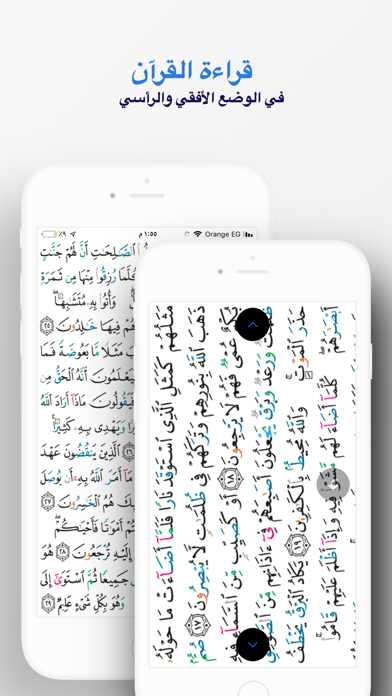 قراءة القرآن
في الوضع الأفقي والرأسي
٩٪ ١:٥٥ م Orange EG
ٱلصَّـٰلِحَـٰتِ أَنَّ لَهُمْ جَنَّـٰتٍ
كُلَّمَا رُزِقُوا۟ مِنْهَا مِن ثَمَرَةٍ
وَأُتُوا۟ بِهِۦ مُتَشَـٰبِهًا ۖ
هُمْ فِيهَا خَـٰلِدُونَ ٢٥
مَثَلًا مَّا بَعُوضَةً فَمَا
يَعْلَمُونَ أَنَّهُ ٱلْحَقُّ مِن
فَيَقُولُونَ مَاذَآ أَرَادَ ٱللَّهُ
وَيَهْدِى بِهِۦ كَثِيرًا ۚ
٢٦ ٱلَّذِينَ يَنقُضُونَ عَهْدَ
مَآ أَمَرَ ٱللَّهُ بِهِۦٓ أَن يُوصَلَ
هُمُ ٱلْخَـٰسِرُونَ ٢٧
أَمْوَٰتًا فَأَحْيَـٰكُمْ ۖ
إِلَيْهِ تُرْجَعُونَ ٢٨
جَمِيعًا ثُمَّ ٱسْتَوَىٰٓ إِلَى
وَهُوَ بِكُلِّ شَىْءٍ عَلِيمٌ ٢٩
مَثَلُهُمْ كَمَثَلِ ٱلَّذِى ٱسْتَوْقَدَ نَارًا فَلَمَّآ أَضَآءَتْ مَا حَوْلَهُۥ
ذَهَبَ ٱللَّهُ بِنُورِهِمْ وَتَرَكَهُمْ فِى ظُلُمَـٰتٍ لَّا يُبْصِرُونَ ١٧ صُمٌّۢ
بُكْمٌ عُمْىٌ فَهُمْ لَا يَرْجِعُونَ ١٨ أَوْ كَصَيِّبٍ مِّنَ ٱلسَّمَآءِ فِيهِ
وَرَعْدٌ وَبَرْقٌ يَجْعَلُونَ أَصَـٰبِعَهُمْ فِىٓ ءَاذَانِهِم مِّنَ
حَذَرَ ٱلْمَوْتِ ۚ وَٱللَّهُ مُحِيطٌۢ بِٱلْكَـٰفِرِينَ ١٩ يَكَادُ ٱلْبَرْقُ يَخْطَفُ
أَبْصَـٰرَهُمْ ۖ كُلَّمَآ أَضَآءَ لَهُم مَّشَوْا۟ فِيهِ وَإِذَآ أَظْلَمَ عَلَيْهِمْ قَامُوا۟ ۚ